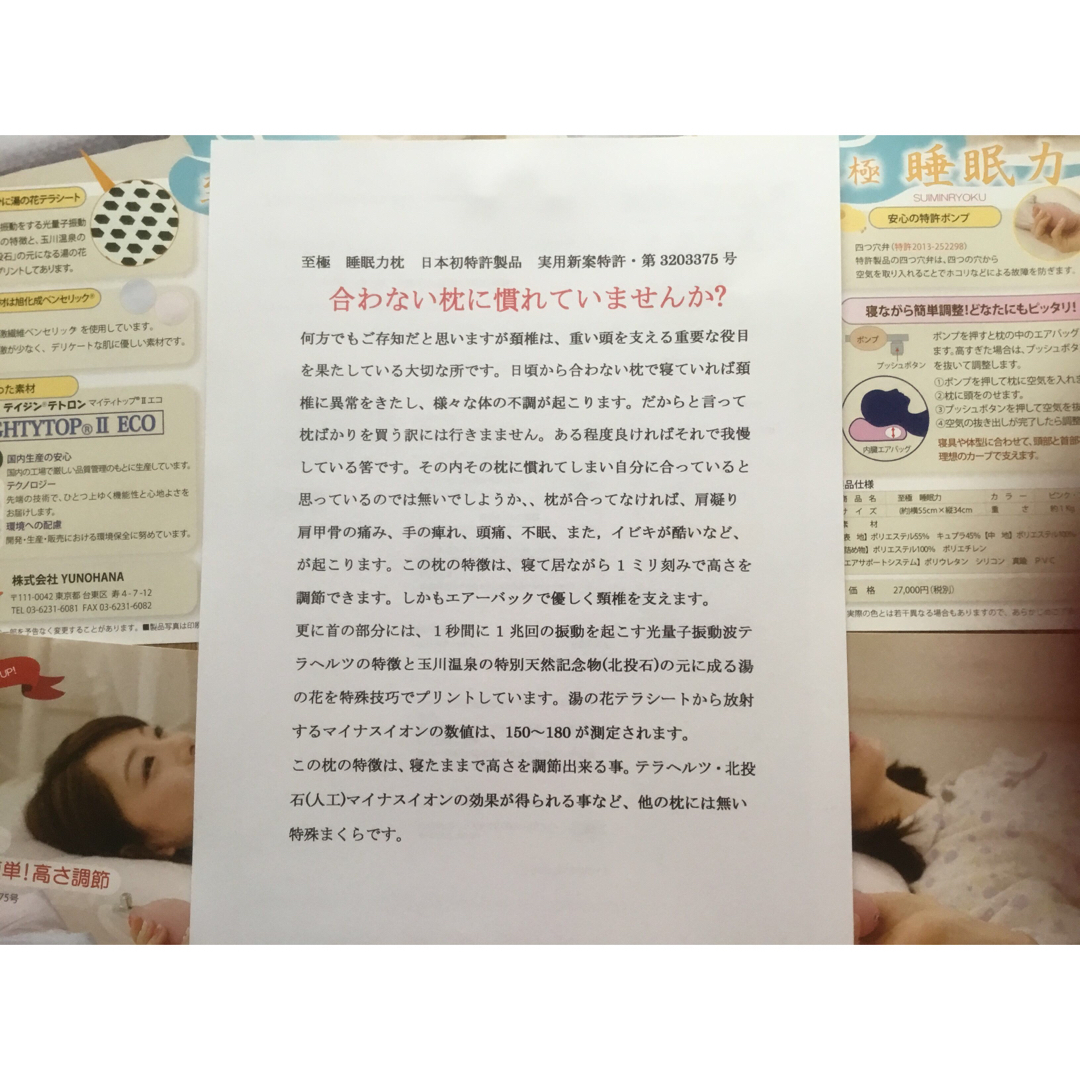 至極　睡眠力枕　日本初特許製品　実用新案特許・第 3203375 号
合わない枕に慣れていませんか?
何方でもご存知だと思いますが頚椎は、重い頭を支える重要な役目
を果たしている大切な所です。日頃から合わない枕で寝ていれば頚
椎に異常をきたし、様々な体の不調が起こります。だからと言って
枕ばかりを買う訳には行きまません。ある程度良ければそれで我慢
している筈です。その内その枕に慣れてしまい自分に合っていると
思っているのでは無いでしようか、、枕が合ってなければ、肩凝り
肩甲骨の痛み、手の痺れ、頭痛、不眠、また，イビキが酷いなど、
が起こります。この枕の特徴は、寝て居ながら１ミリ刻みで高さを
調節できます。しかもエアーバックで優しく頸椎を支えます。
更に首の部分には、１秒間に１兆回の振動を起こす光量子振動波テ
ラヘルツの特徴と玉川温泉の特別天然記念物(北投石)の元に成る湯
の花を特殊技巧でプリントしています。湯の花テラシートから放射
するマイナスイオンの数値は、150〜180 が測定されます。
この枕の特徴は、寝たままで高さを調節出来る事。テラヘルツ・北投
石(人工)マイナスイオンの効果が得られる事など、他の枕には無い
特殊まくらです。
に湯の花テラシート
振動をする光量子振動
の特徴と、玉川温泉の
投石」の元になる湯の花
プリントしてあります。
は旭化成ベンセリック®
激繊維ベンセリック を使用しています。
激が少なく、デリケートな肌に優しい素材です。
った素材
テイジン®テトロン マイティトップ®II エコ
GHTYTOP® II ECO
国内生産の安心
国内の工場で厳しい品質管理のもとに生産しています。
テクノロジー
先端の技術で、ひとつ上ゆく機能性と心地よさを
お届けします。
環境への配慮
開発・生産・販売における環境保全に努めています。
株式会社 YUNOHANA
〒111-0042 東京都 台東区 寿 4-7-12
TEL 03-6231-6081 FAX 03-6231-6082
一部を予告なく変更することがあります。■製品写真は印刷
UP!
単！高さ調節
75号
極 睡眠力
SUIMINRYOKU
安心の特許ポンプ
四つ穴弁（特許2013-252298）
特許製品の四つ穴弁は、四つの穴から
空気を取り入れることでホコリなどによる故障を防ぎます。
寝ながら簡単調整！どなたにもピッタリ！
ポンプ
プッシュボタン
ポンプを押すと枕の中のエアバッグ
ます。高すぎた場合は、プッシュボタ
を抜いて調整します。
①ポンプを押して枕に空気を入れ
②枕に頭をのせます。
③プッシュボタンを押して空気を抜
④空気の抜き出しが完了したら調整
内臓エアバッグ
寝具や体型に合わせて、頭部と首部
理想のカーブで支えます。
品仕様
品　名　至極　睡眠力　カ ラ ー　ピンク
サ イ ズ　(約)横55cm×縦34cm　重　さ　約1
素　材
地】ポリエステル55%　キュプラ45%【中 地】ポリエステル100%
詰め物】ポリエステル100%　ポリエチレン
エアサポートシステム】ポリウレタン　シリコン　真鍮　PVC
価　格　27,000円（税別）
実際の色とは若干異なる場合もありますので、あらかじめご了